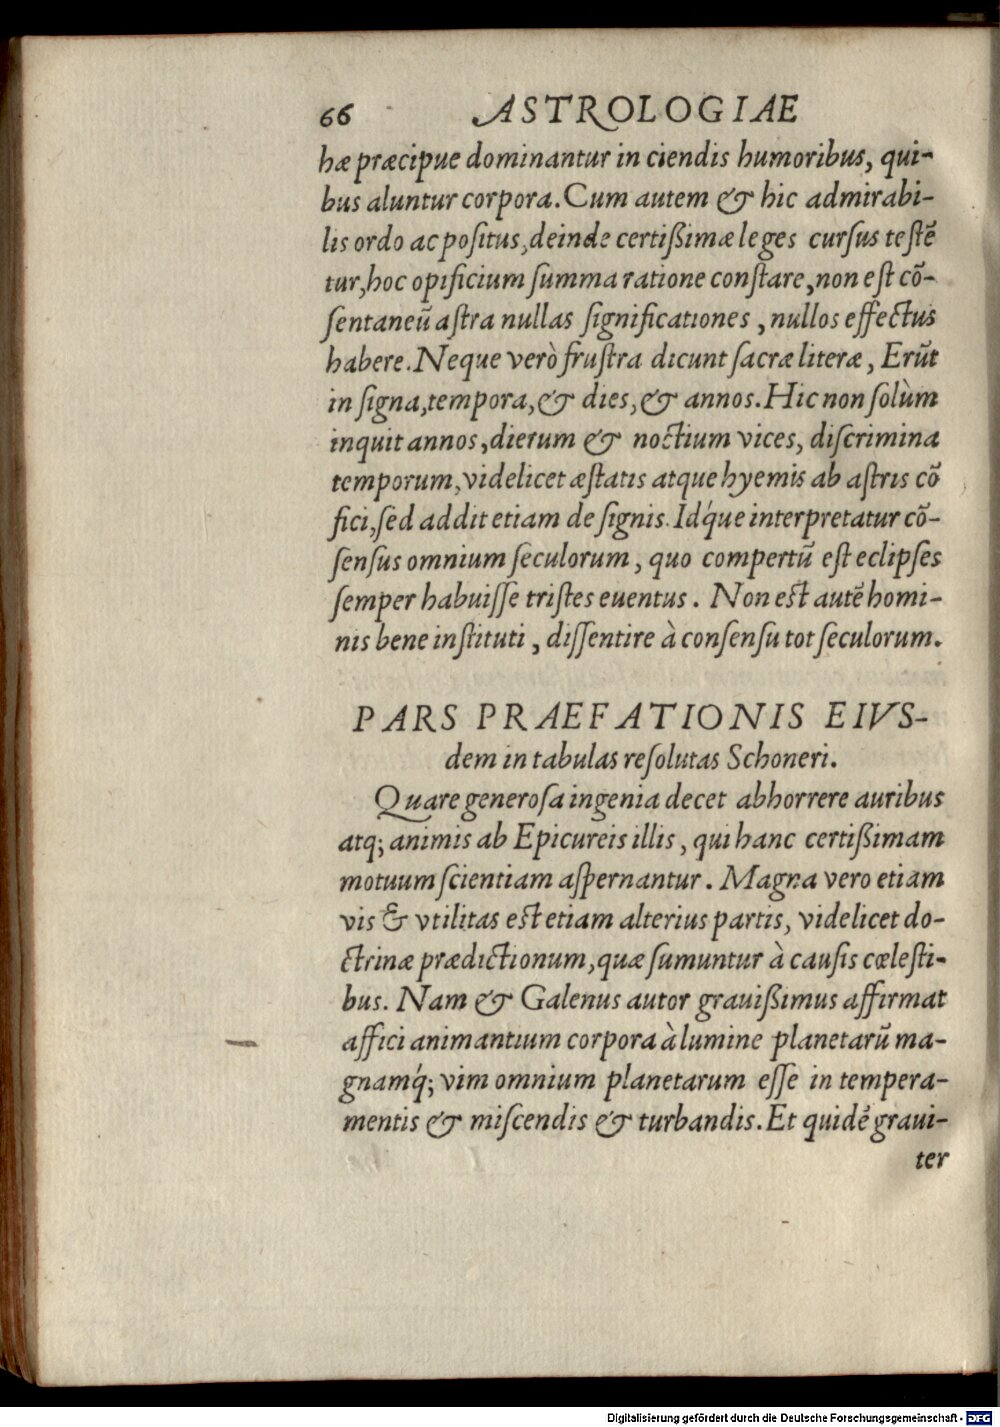 66 ASTROLOGIAE
hæ præcipue dominantur in ciendis humoribus, qui-
bus aluntur corpora. Cum autem & hic admirabi-
lis ordo ac positus, deinde certißimæ leges cursus testẽ
tur, hoc opificium summa ratione constare, non est cõ-
sentaneũ astra nullas significationes, nullos effectus
habere. Neque verò frustra dicunt sacræ literæ, Erũt
in signa, tempora, & dies, & annos. Hic non solùm
inquit annos, dierum & noctium vices, discrimina
temporum, videlicet æstatis atque hyemis ab astris cõ
fici, sed addit etiam de signis. Id́que interpretatur cõ-
sensus omnium seculorum, quo compertũ est eclipses
semper habuisse tristes euentus. Non est autẽ homi-
nis bene instituti, dissentire à consensu tot seculorum.
PARS PRAEFATIONIS EIVS-
dem in tabulas resolutas Schoneri.
Quare generosa ingenia decet abhorrere auribus
atq; animis ab Epicureis illis, qui hanc certißimam
motuum scientiam aspernantur. Magna vero etiam
vis & vtilitas est etiam alterius partis, videlicet do-
ctrinæ prædictionum, quæ sumuntur à causis cœlesti-
bus. Nam & Galenus autor grauißimus affirmat
affici animantium corpora à lumine planetarũ ma-
gnamq́; vim omnium planetarum esse in tempera-
mentis & miscendis & turbandis. Et quidẽ graui-
ter
Digitalisierung gefördert durch die Deutsche Forschungsgemeinschaft - DFG